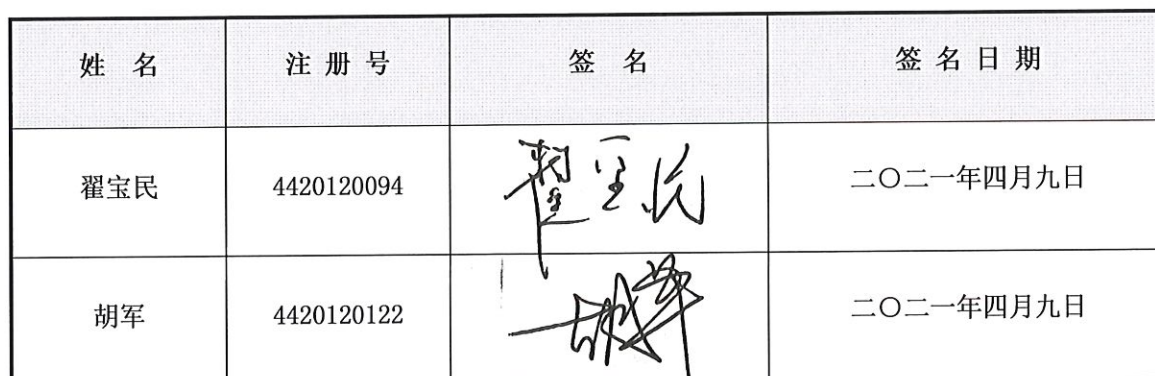 姓 名 注 册 号 签 名 签 名 日 期
翟宝民 4420120094 翟宝民 二〇二一年四月九日
胡军 4420120122 胡军 二〇二一年四月九日